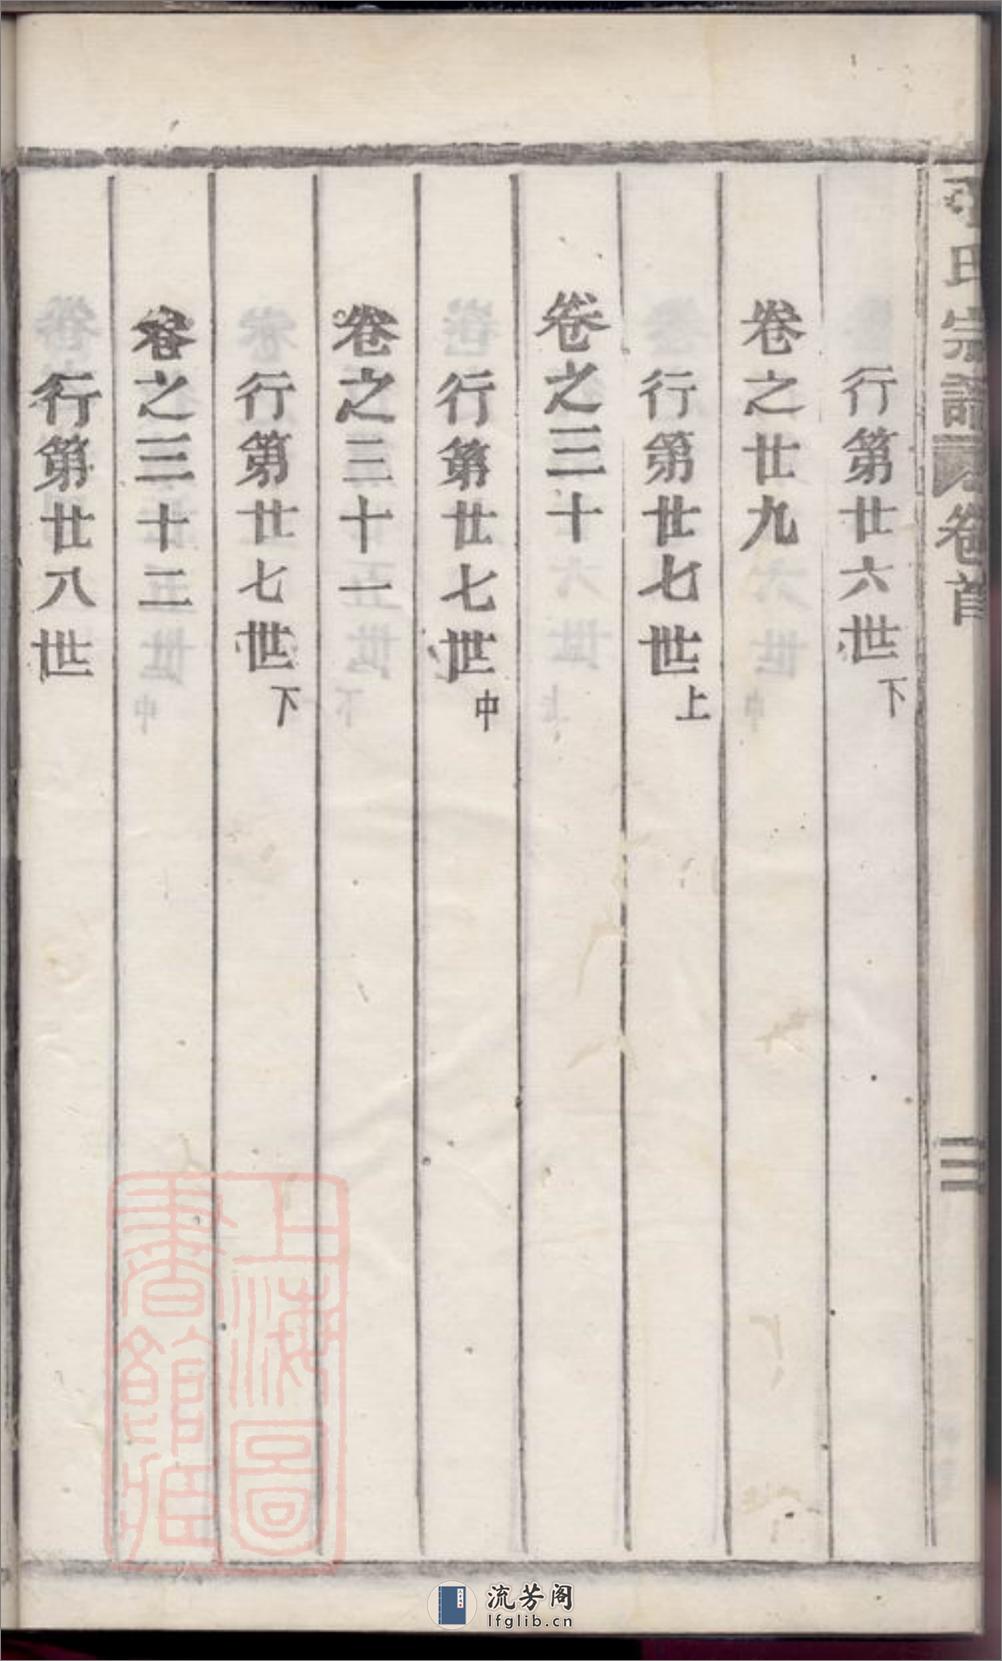 氏宗譜 卷首 二
行第廿六世下
卷之廿九
行第廿七世上
卷之三十
行第廿七世中
卷之三十一
行第廿七世下
卷之三十二
行第廿八世
上海圖
書館藏
流芳阁
lfglib.cn